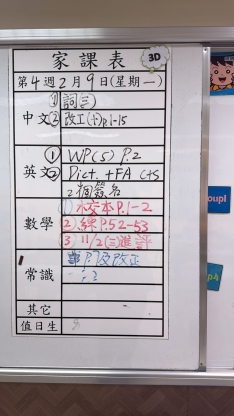 家課表
3D
第4週2月9日(星期一)
中文
① 詞三
② 改工(十)P.1-15
英文
① WP(5) P.2
② Dict. +FA C+S
2個簽名
數學
① 校本P.1-2
② 練P.52-53
③ 11/2(三)進評
常識
P.7及改正
其它
值日生
oupl